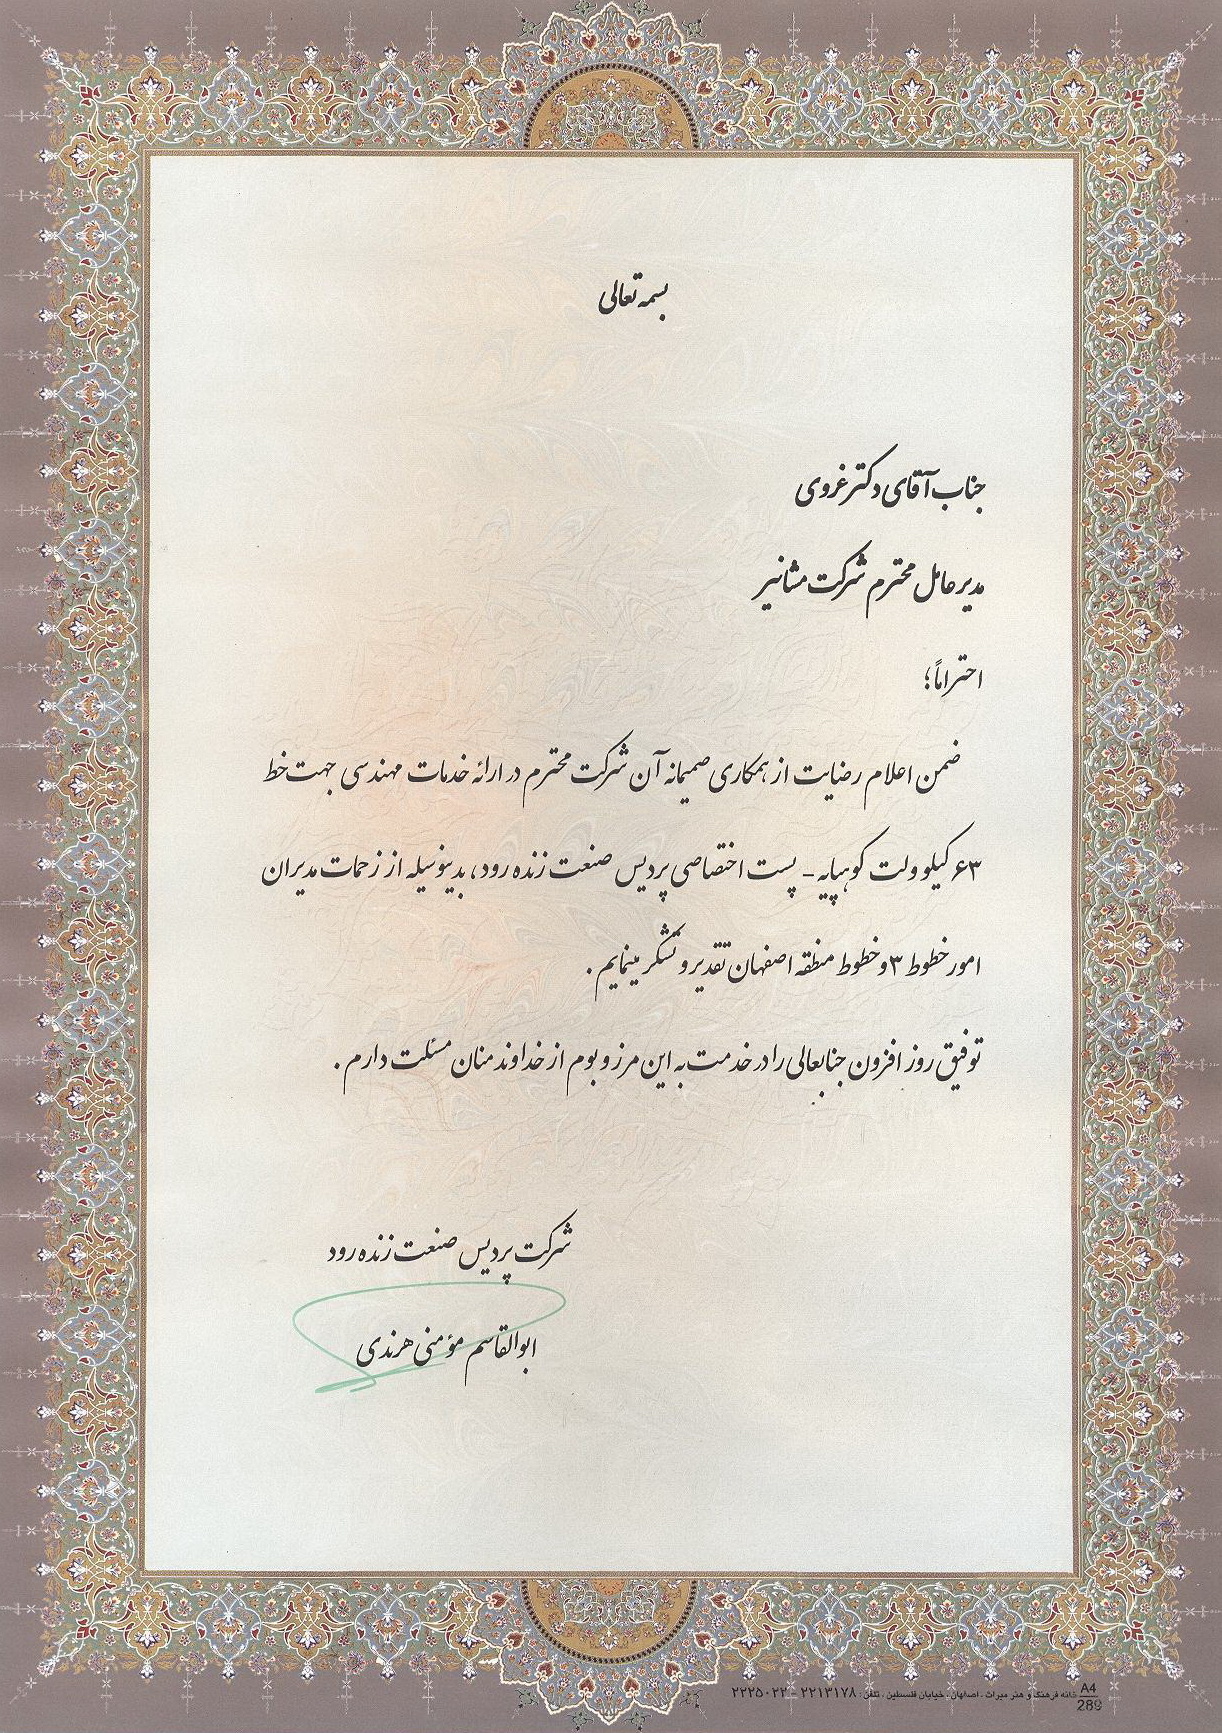 بسمه تعالی
جناب آقای دکتر غروی
مدیر عامل محترم شرکت مشانیر
احتراماً؛
ضمن اعلام رضایت از همکاری صمیمانه آن شرکت محترم در ارائه خدمات مهندسی جهت خط
۶۳ کیلو ولت کوهپایه - پست اختصاصی پردیس صنعت زنده رود، بدینوسیله از زحمات مدیران
امور خطوط ۳ و خطوط منطقه اصفهان تقدیر و تشکر مینمایم .
توفیق روز افزون جنابعالی را در خدمت به این مرز و بوم از خداوند منان مسئلت دارم .
شرکت پردیس صنعت زنده رود
ابوالقاسم مؤمنی هرندی
A4
289
خانه فرهنگ و هنر میراث . اصفهان . خیابان فلسطین . تلفن : ۲۲۱۳۱۷۸ - ۲۲۲۵۰۲۲